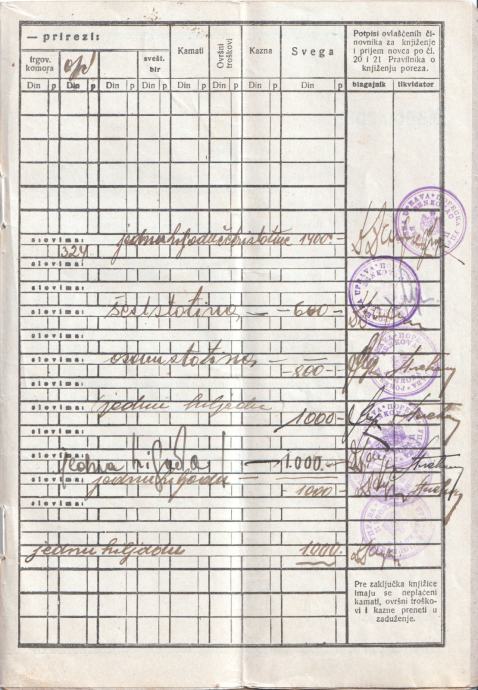 — prirezi:
trgov.
komora
opć
svešt.
bir
Kamati
Ovršni
troškovi
Kazna
Svega
Potpisi ovlašćenih či-
novnika za knjiženje
i prijem novca po čl.
20 i 21 Pravilnika o
knjiženju poreza.
Din p Din p Din p Din p Din p Din p Din p Din p
blagajnik likvidator
slovima: jednu hiljadu četiristotine 1400.—
324
slovima:
slovima:
šeststotina — 600 —
slovima:
slovima:
osamstotina — 800 —
slovima:
slovima:
jednu hiljadu 1000 —
slovima:
slovima:
Jedna hiljada — 1.000.—
slovima: jednu hiljadu — 1000 —
slovima:
jednu hiljadu 1000.—
Pre zaključka knjižice
imaju se neplaćeni
kamati, ovršni troško-
vi i kazne preneti u
zaduženje.